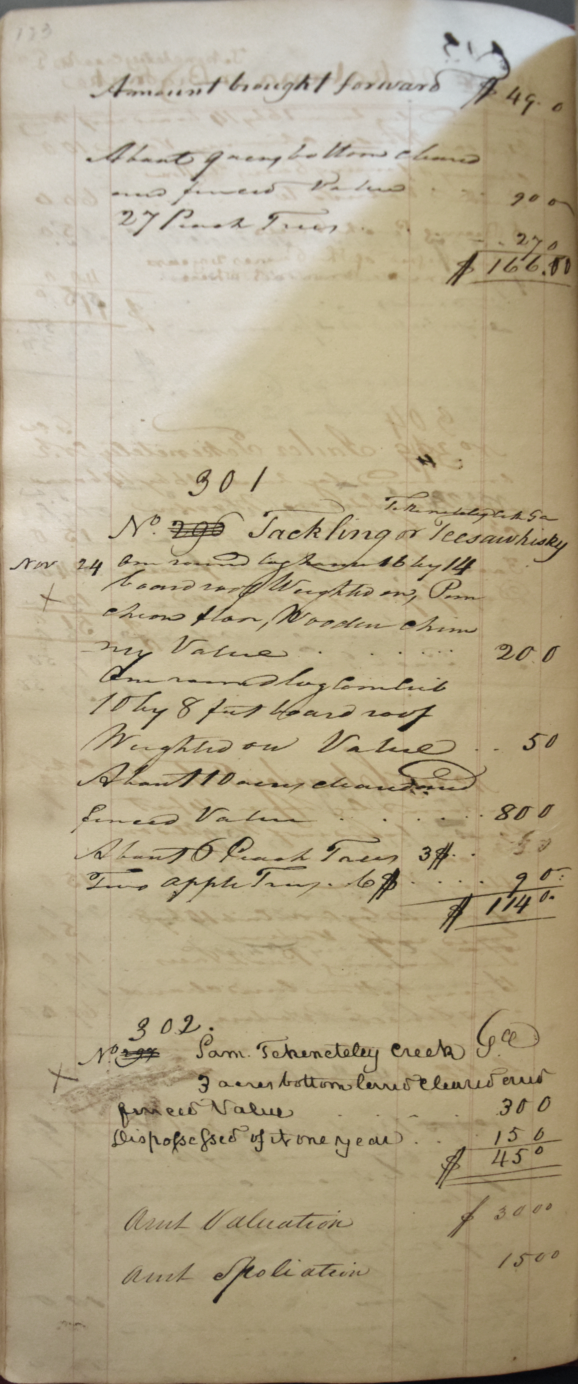 123
Amount brought forward $ 49.0
About 9 acres bottom cleared
and fenced Value 90 0
27 Peach Trees 27 0
$ 166.00
301
Tekeneteley Creek Ga
No. 296 Tackling or Teesawhisky
Nov. 24 One round log house 16 by 14
board roof Weighted on, Pun
cheon floor, Wooden chim
ney Value 20 0
One round log corn crib
10 by 8 feet board roof
Weighted on Value 50
About 10 acres cleared and
fenced Value 80 0
About 6 Peach Trees 3$
Two apple Trees. 6$ 9 0
$ 114 0
302.
No. 297 Sam. Tekeneteley Creek Ga
3 acres bottom land cleared and
fenced Value 30 0
Dispossessed of it one year 15 0
$ 45 0
Amt Valuation $ 30 00
Amt Spoliation 15 00